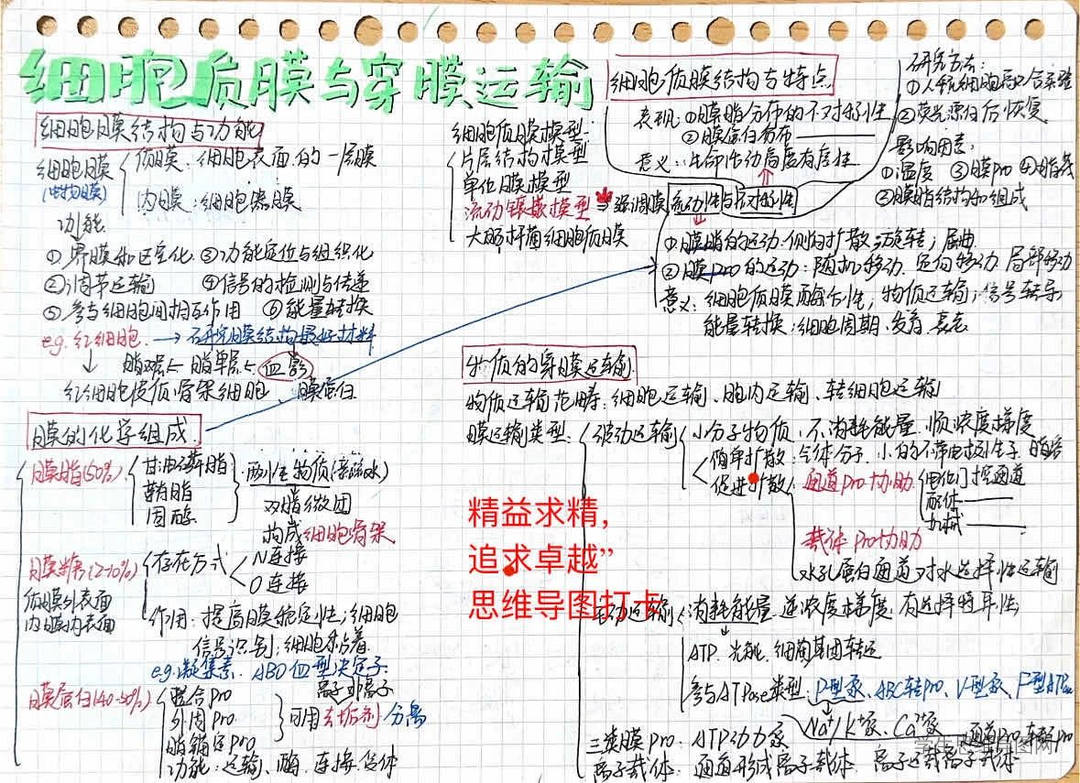 细胞质膜与穿膜运输
细胞膜结构与功能
细胞膜
(生物膜)
质膜：细胞表面的一层膜
内膜：细胞器膜
功能
①界膜和区室化 ③功能定位与组织化
②调节运输 ④信号的检测与传递
⑤参与细胞间相互作用 ⑥能量转换
eg. 红细胞 → 研究膜结构最好材料
脂双层← 脂单层← 血影
红细胞 质骨架细胞、膜蛋白
膜的化学组成
膜脂(50%)
甘油磷脂
鞘脂
固醇
两性物质(亲疏水)
双脂微团
构成细胞骨架
膜糖(2-10%)
质膜外表面
内膜内表面
存在方式
N连接
O连接
作用：提高膜稳定性；细胞
信号识别；细胞粘着
eg.凝集素、ABO血型决定子
膜蛋白(40-50%)
整合Pro
外周Pro
脂锚定Pro
离子 非离子
可用去垢剂分离
功能：运输、酶、连接、受体
细胞质膜模型：
片层结构模型
单位膜模型
流动镶嵌模型 ⇒ 强调膜流动性与不对称性
大肠杆菌细胞质膜
细胞质膜结构与特点
表现：①膜脂分布的不对称性
②膜蛋白分布
意义：生命活动高度有序性
研究方法：
①人鼠细胞融合实验
②荧光漂白后恢复
影响因素：
①温度 ③膜Pro ④脂
②膜脂结构和组成
①膜脂的运动：侧向扩散；旋转；屈曲
②膜Pro的运动：随机移动、定向移动、局部移动
意义：细胞质膜酶活性，物质运输；信号转导
能量转换；细胞周期、发育、衰老
物质的穿膜运输
物质运输范畴：细胞运输、胞内运输、转细胞运输
膜运输类型：
被动运输
小分子物质，不消耗能量，顺浓度梯度
简单扩散：气体分子、小的不带电极性分子、脂溶
促进扩散
通道Pro协助
电位门控通道
配体
机械
载体Pro协助
水孔蛋白通道：对水选择性运输
精益求精，
追求卓越”
思维导图打卡
主动运输
消耗能量，逆浓度梯度，有选择特异性
ATP、光能、细菌基团转运
参与ATPase类型：P-型泵、ABC转Pro、V-型泵、F-型ATPase
Na⁺/K⁺泵、Ca²⁺泵
三类膜Pro：ATP动力泵、通道Pro、转运Pro
离子载体：通道形成离子载体、离子运载离子载体
学生思维导图网